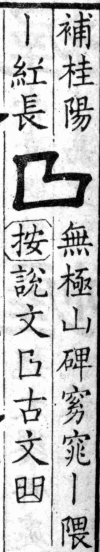 補桂陽
丨紅長
無極山碑窈窕丨隈
按說文古文